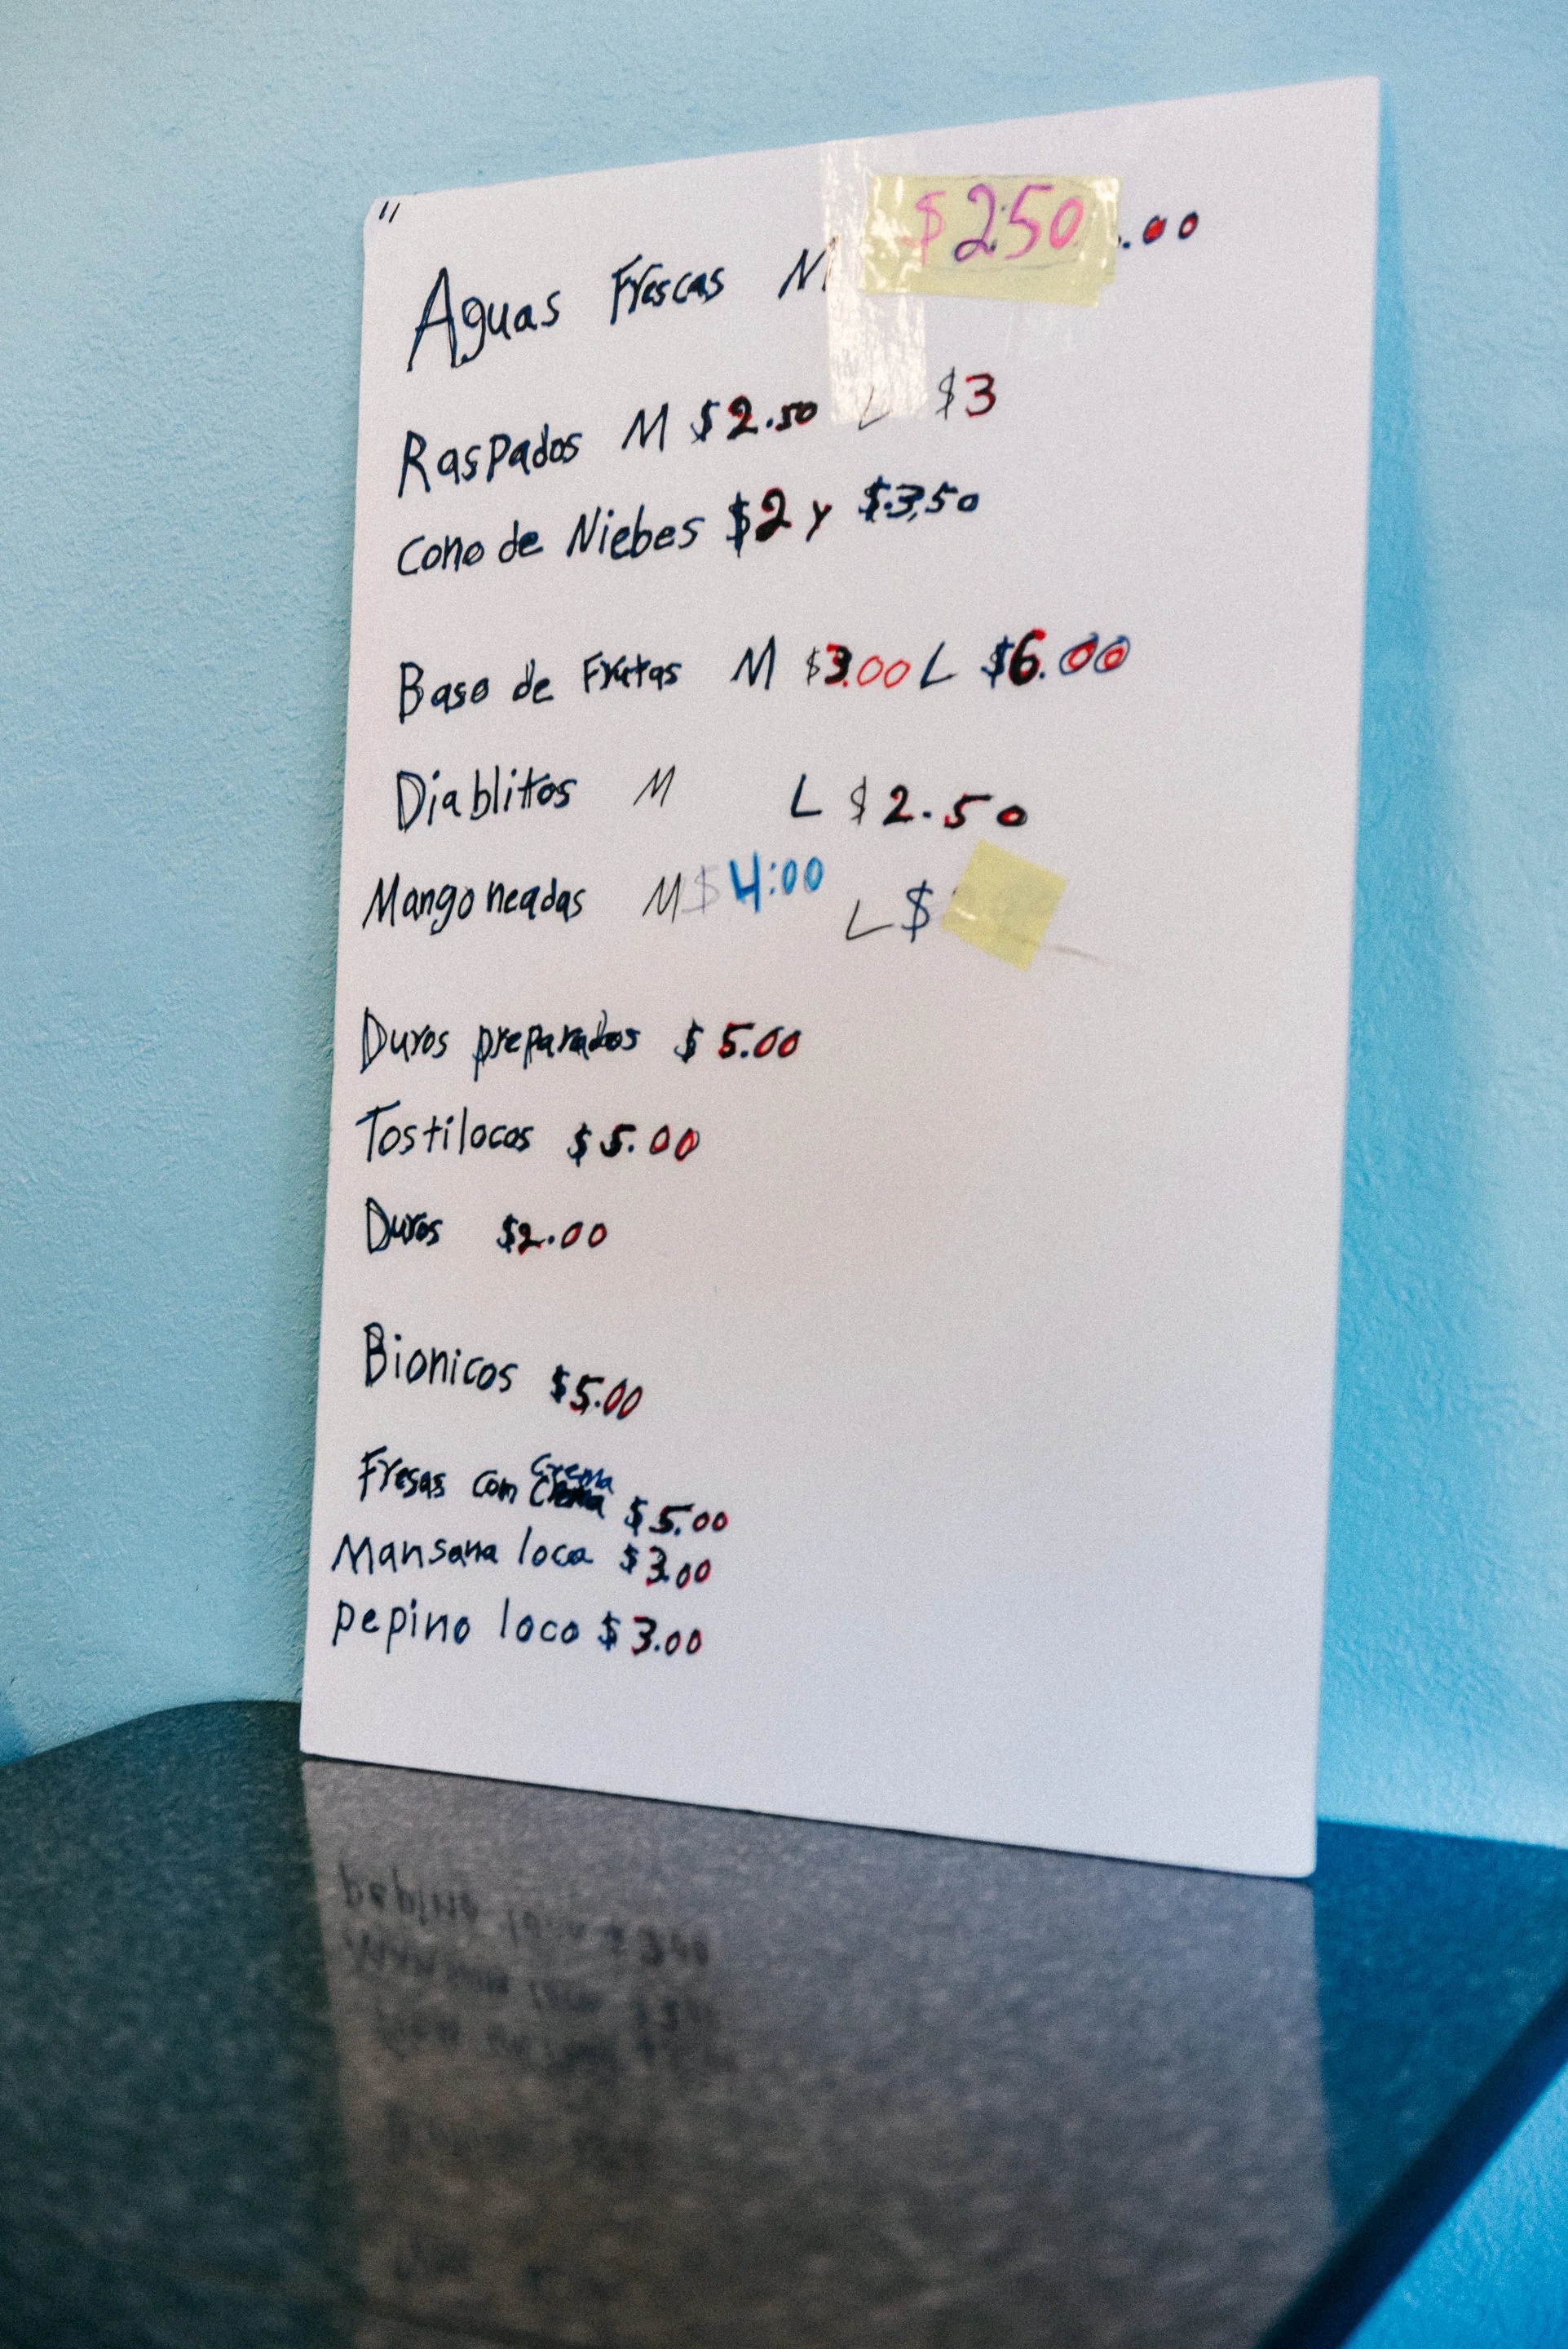 "
Aguas Frescas M $2.50 .00
Raspados M $2.50 L $3
Cono de Niebes $2 y $3.50
Baso de Frutas M $3.00 L $6.00
Diablitos M L $2.50
Mangoneadas M $4:00 L $
Duros preparados $5.00
Tostilocos $5.00
Duros $2.00
Bionicos $5.00
Fresas com Crema Crema $5.00
Mansana loca $3.00
pepino loco $3.00